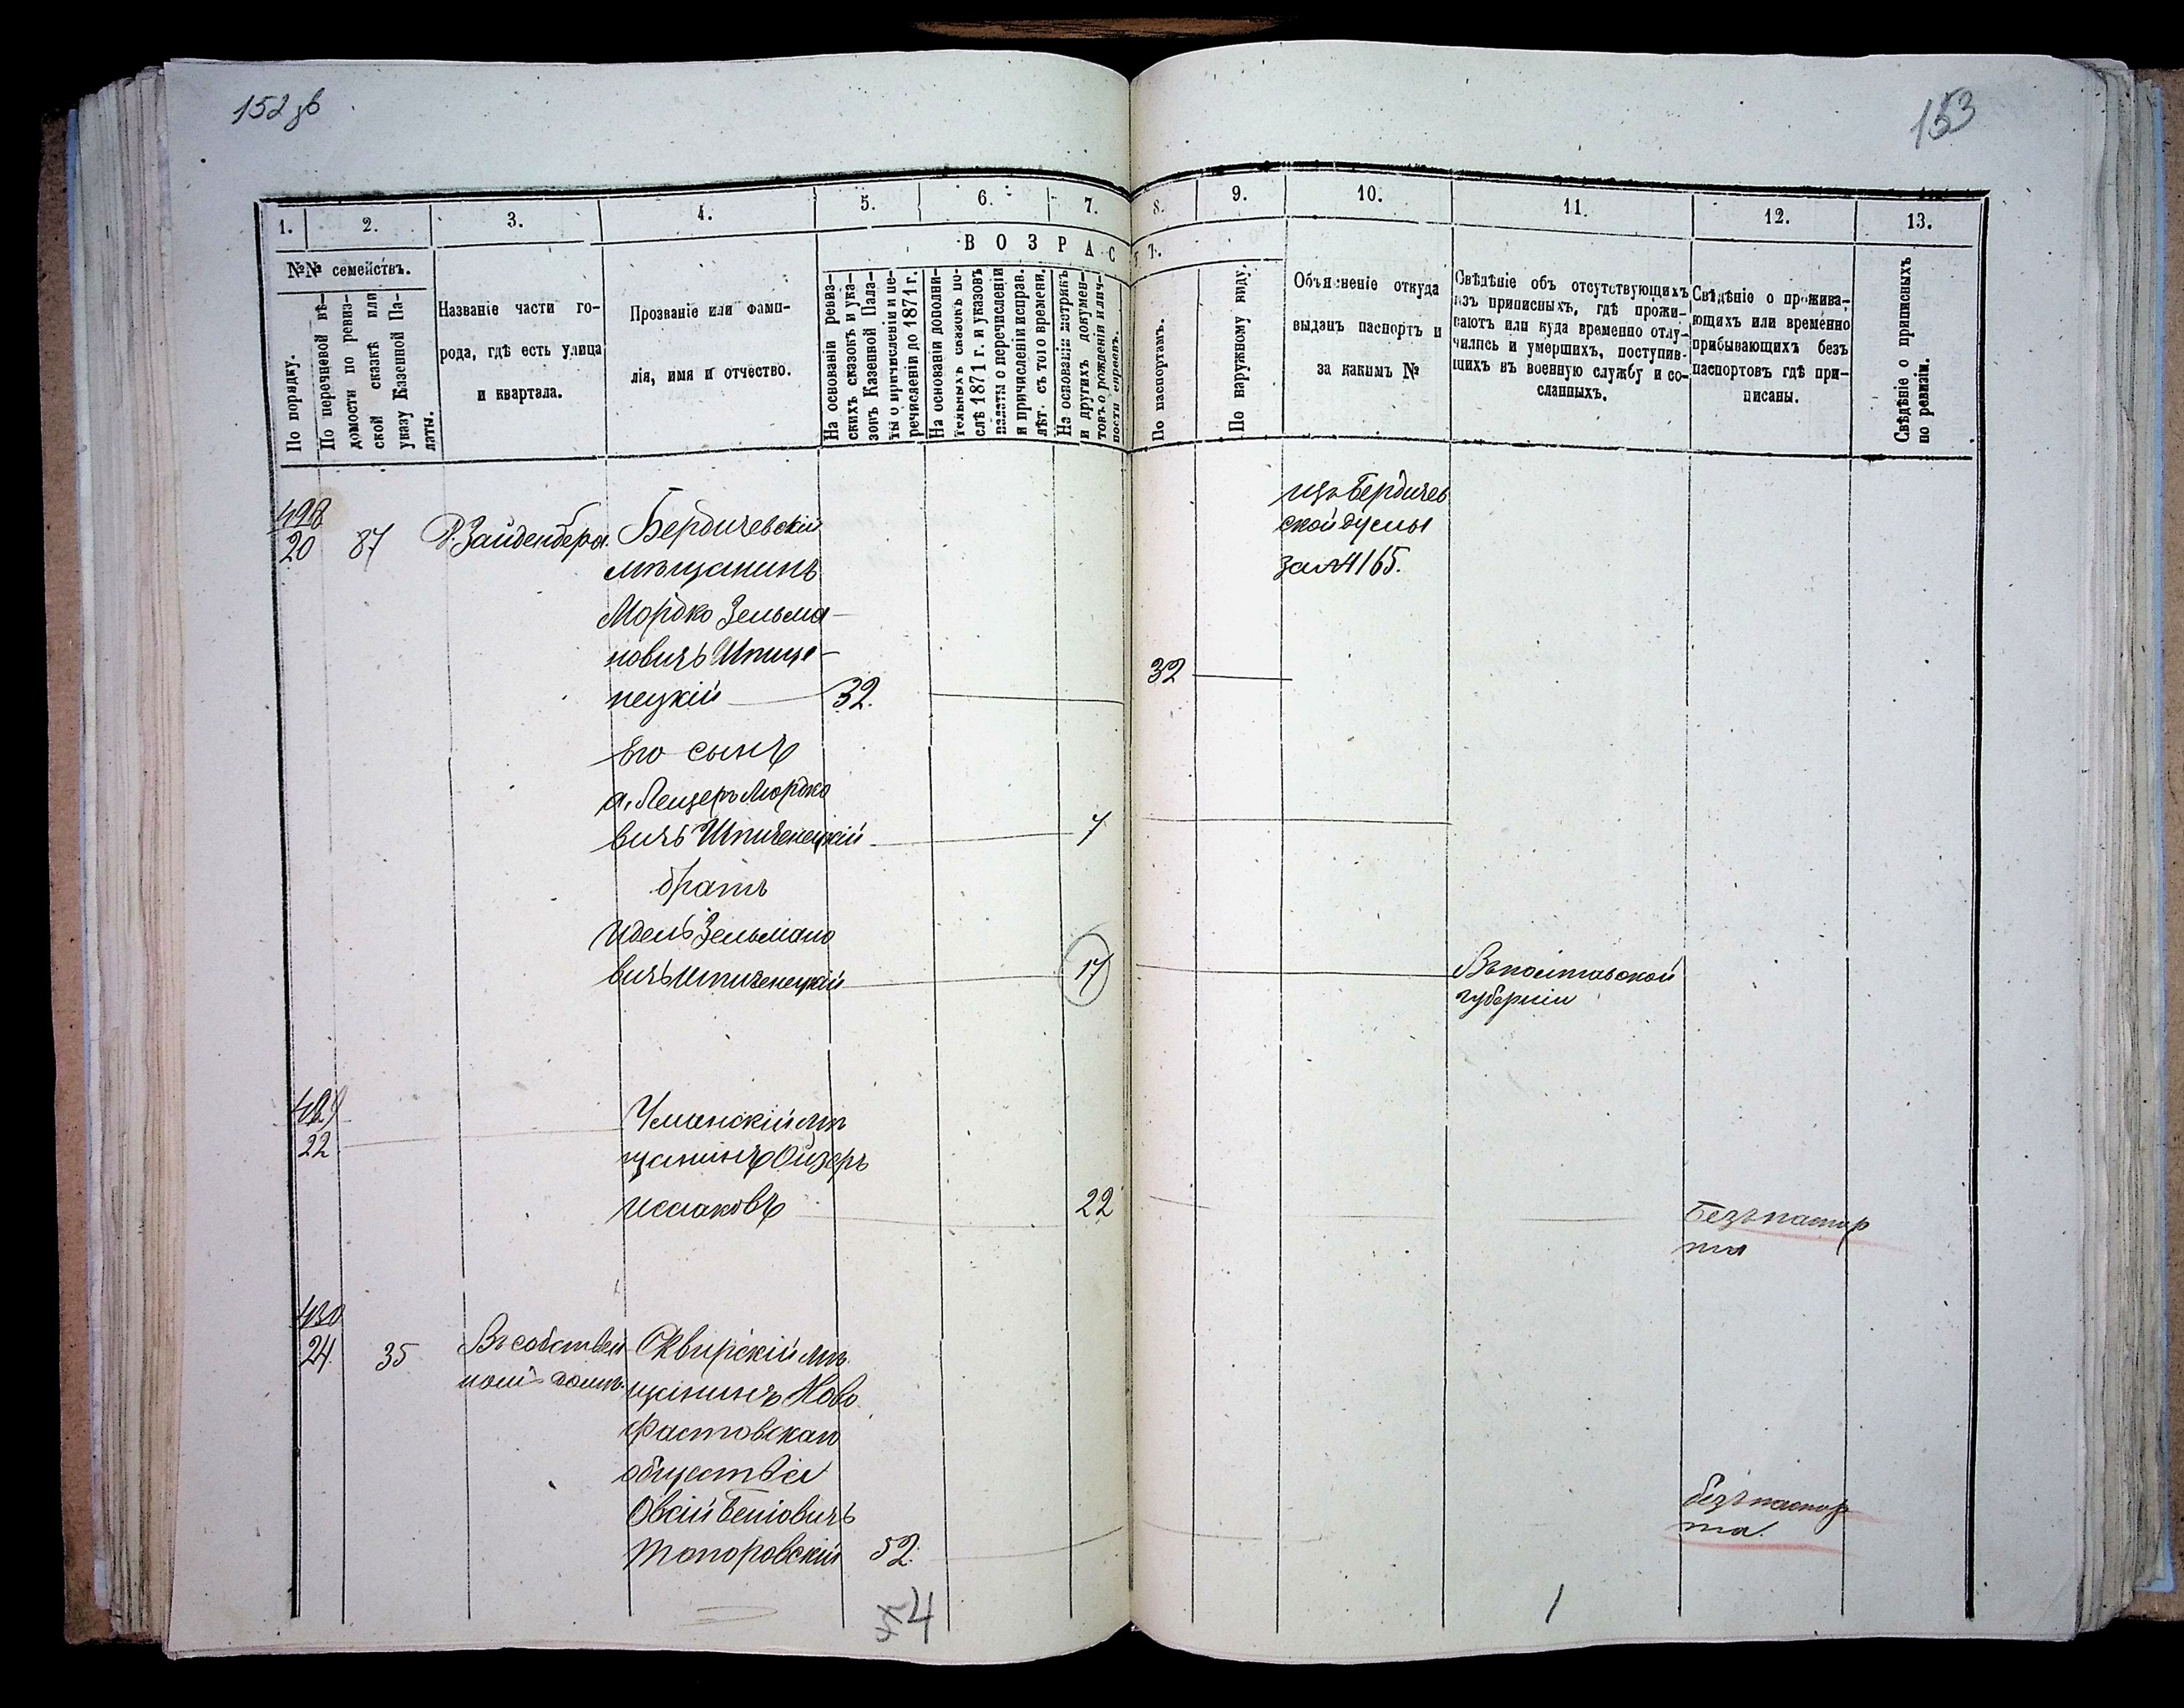 152 зв
153
1.
2.
3.
4.
5.
6.
7.
8.
9.
10.
11.
12.
13.
№№ семействъ.
По порядку.
По перечневой вѣ-
домости по ревиз-
ской сказкѣ или
указу Казенной Па-
латы.
Названіе части го-
рода, гдѣ есть улица
и квартала.
Прозваніе или фами-
лія, имя и отчество.
ВОЗРАСТЪ.
На основаніи ревиз-
скихъ сказокъ и ука-
зовъ Казенной Пала-
ты о причисленіи и пе-
речисленіи до 1871 г.
На основаніи дополни-
тельныхъ сказокъ по-
слѣ 1871 г. и указовъ
палаты о перечисленіи
и причисленіи исправ.
лѣт. съ того времени.
На основаніи метрикъ
и другихъ докумен-
товъ о рожденіи и лич-
ности справкъ.
По паспортамъ.
По наружному виду.
Объясненіе откуда
выданъ паспортъ и
за какимъ №
Свѣдѣніе объ отсутствующихъ
изъ приписныхъ, гдѣ прожи-
ваютъ или куда временно отлу-
чились и умершихъ, поступив-
щихъ въ военную службу и со-
сланныхъ.
Свѣдѣніе о прожива-
ющихъ или временно
прибывающихъ безъ
паспортовъ гдѣ при-
писаны.
Свѣдѣніе о приписныхъ
по ревизіи.
428
20 87 Р. Зайденберга Бердичевскій
мѣщанинъ
Мордко Зельма-
новичъ Шпиче-
нецкій 32. 32
изъ Бердичев
ской думы
за № 4165.
Его сынъ
а, Лейзеръ Мордко
вичъ Шпиченецкій 7
братъ
Идель Зельмано
вичъ Шпиченецкій 17 Въ полтавской
губерніи
429
22 Уманскій мѣ
щанинъ Ойзеръ
Исааковъ 22 Безъ паспор
та
430
24. 35 Въ собствен
номъ домѣ
Сквирскій мѣ
щанинъ Ново
Фастовскаго
общества
Овсій Беніовичъ
Топоровскій 52. безъ паспор
та.
4
1